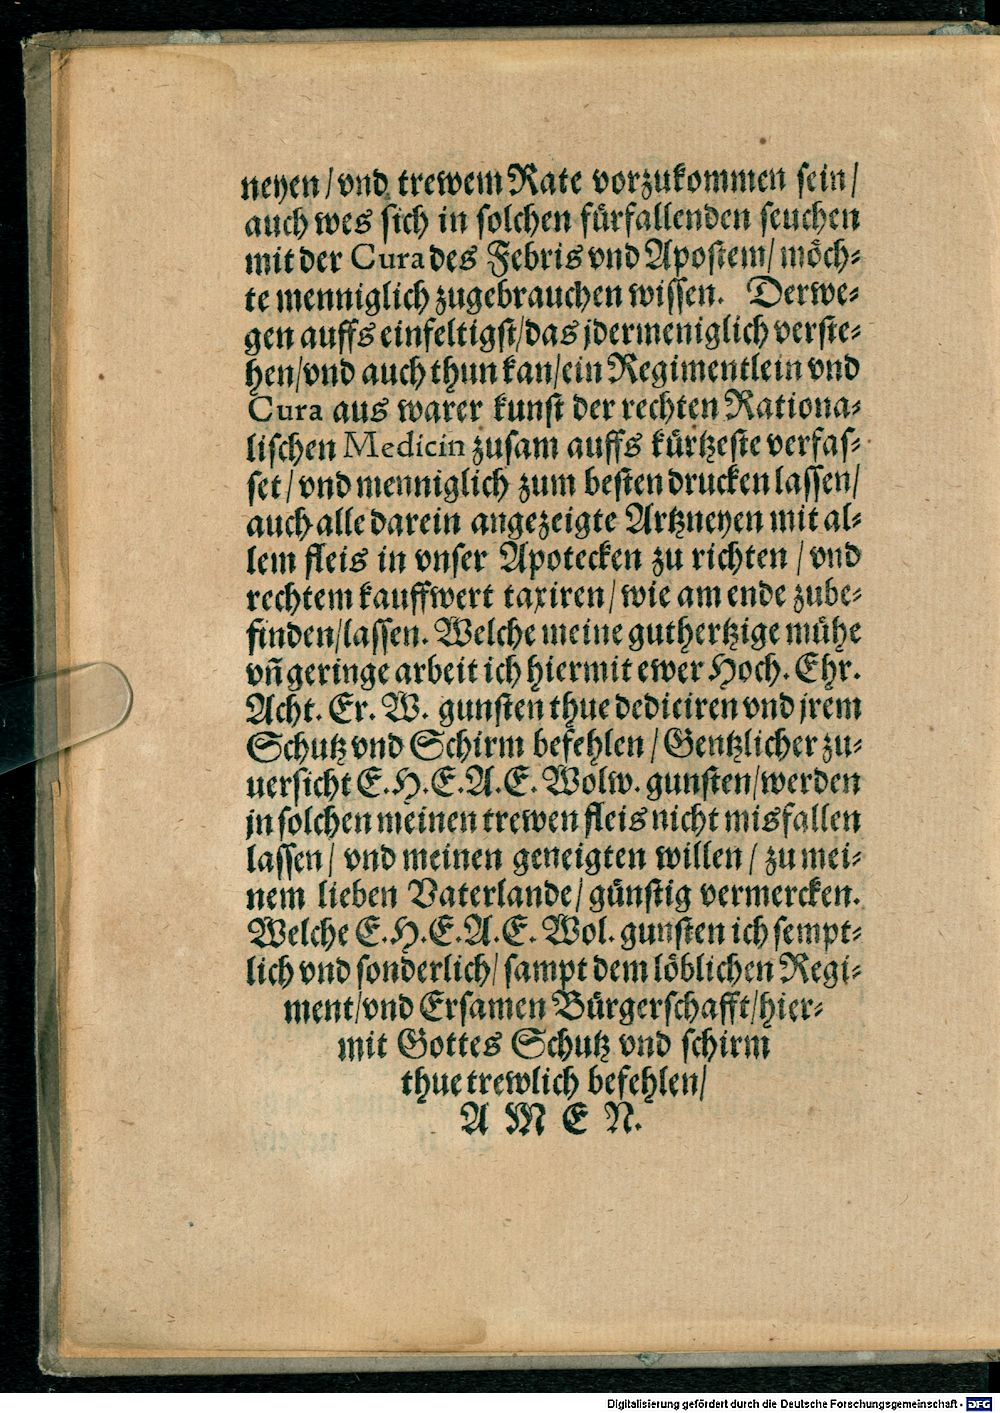 neyen/vnd trewem Rate vorzukommen sein/
auch wes sich in solchen fürfallenden seuchen
mit der Cura des Febris vnd Apostem/möch-
te menniglich zugebrauchen wissen. Derwe-
gen auffs einfeltigst/das jdermeniglich verste-
hen/vnd auch thun kan/ein Regimentlein vnd
Cura aus warer kunst der rechten Rationa-
lischen Medicin zusam auffs kürtzeste verfas-
set/vnd menniglich zum besten drucken lassen/
auch alle darein angezeigte Artzneyen mit al-
lem fleis in vnser Apotecken zu richten/vnd
rechtem kauffwert taxiren/wie am ende zube-
finden/lassen. Welche meine guthertzige mühe
vñ geringe arbeit ich hiermit ewer Hoch. Ehr.
Acht. Er. W. gunsten thue dediciren vnd jrem
Schutz vnd Schirm befehlen/Gentzlicher zu-
uersicht E.H.E.A.E. Wolw. gunsten/werden
jn solchen meinen trewen fleis nicht misfallen
lassen/vnd meinen geneigten willen/zu mei-
nem lieben Vaterlande/günstig vermercken.
Welche E.H.E.A.E. Wol. gunsten ich sempt-
lich vnd sonderlich/sampt dem löblichen Regi-
ment/vnd Ersamen Bürgerschafft/hier-
mit Gottes Schutz vnd schirm
thue trewlich befehlen/
A M E N.
Digitalisierung gefördert durch die Deutsche Forschungsgemeinschaft - DFG